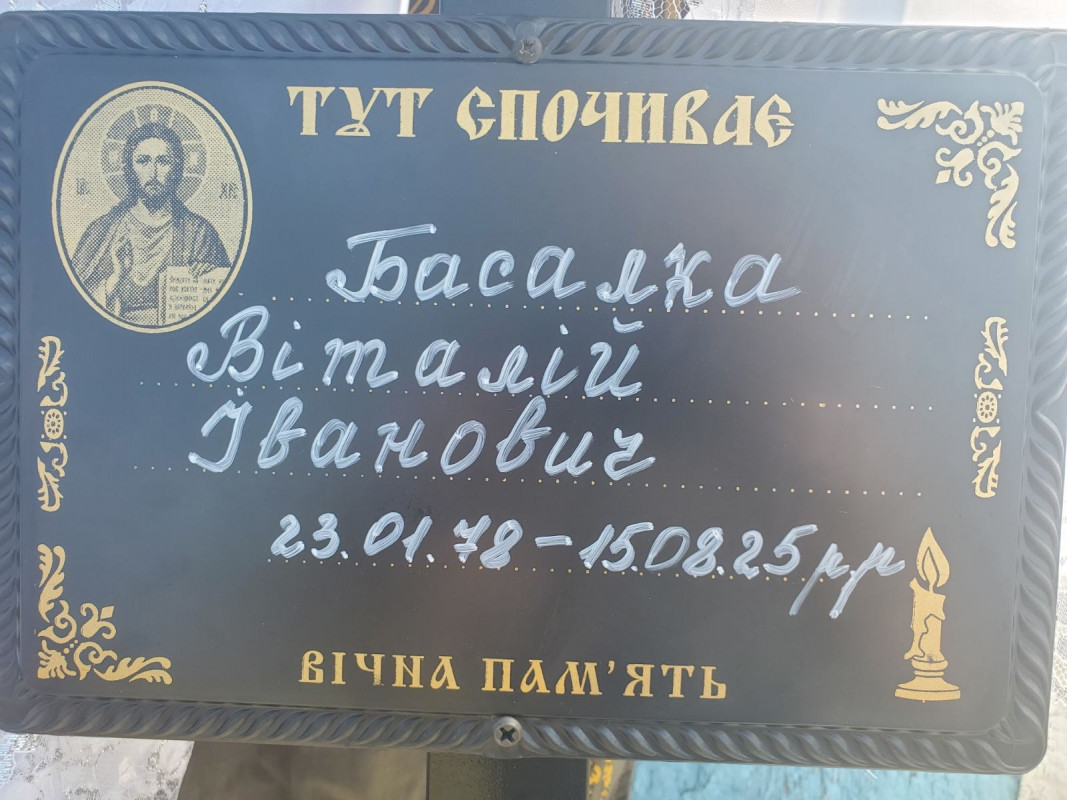 ТУТ СПОЧИВАЄ
ІС ХС
Басалка
Віталій
Іванович
23.01.78-15.08.25р.р
ВІЧНА ПАМ'ЯТЬ